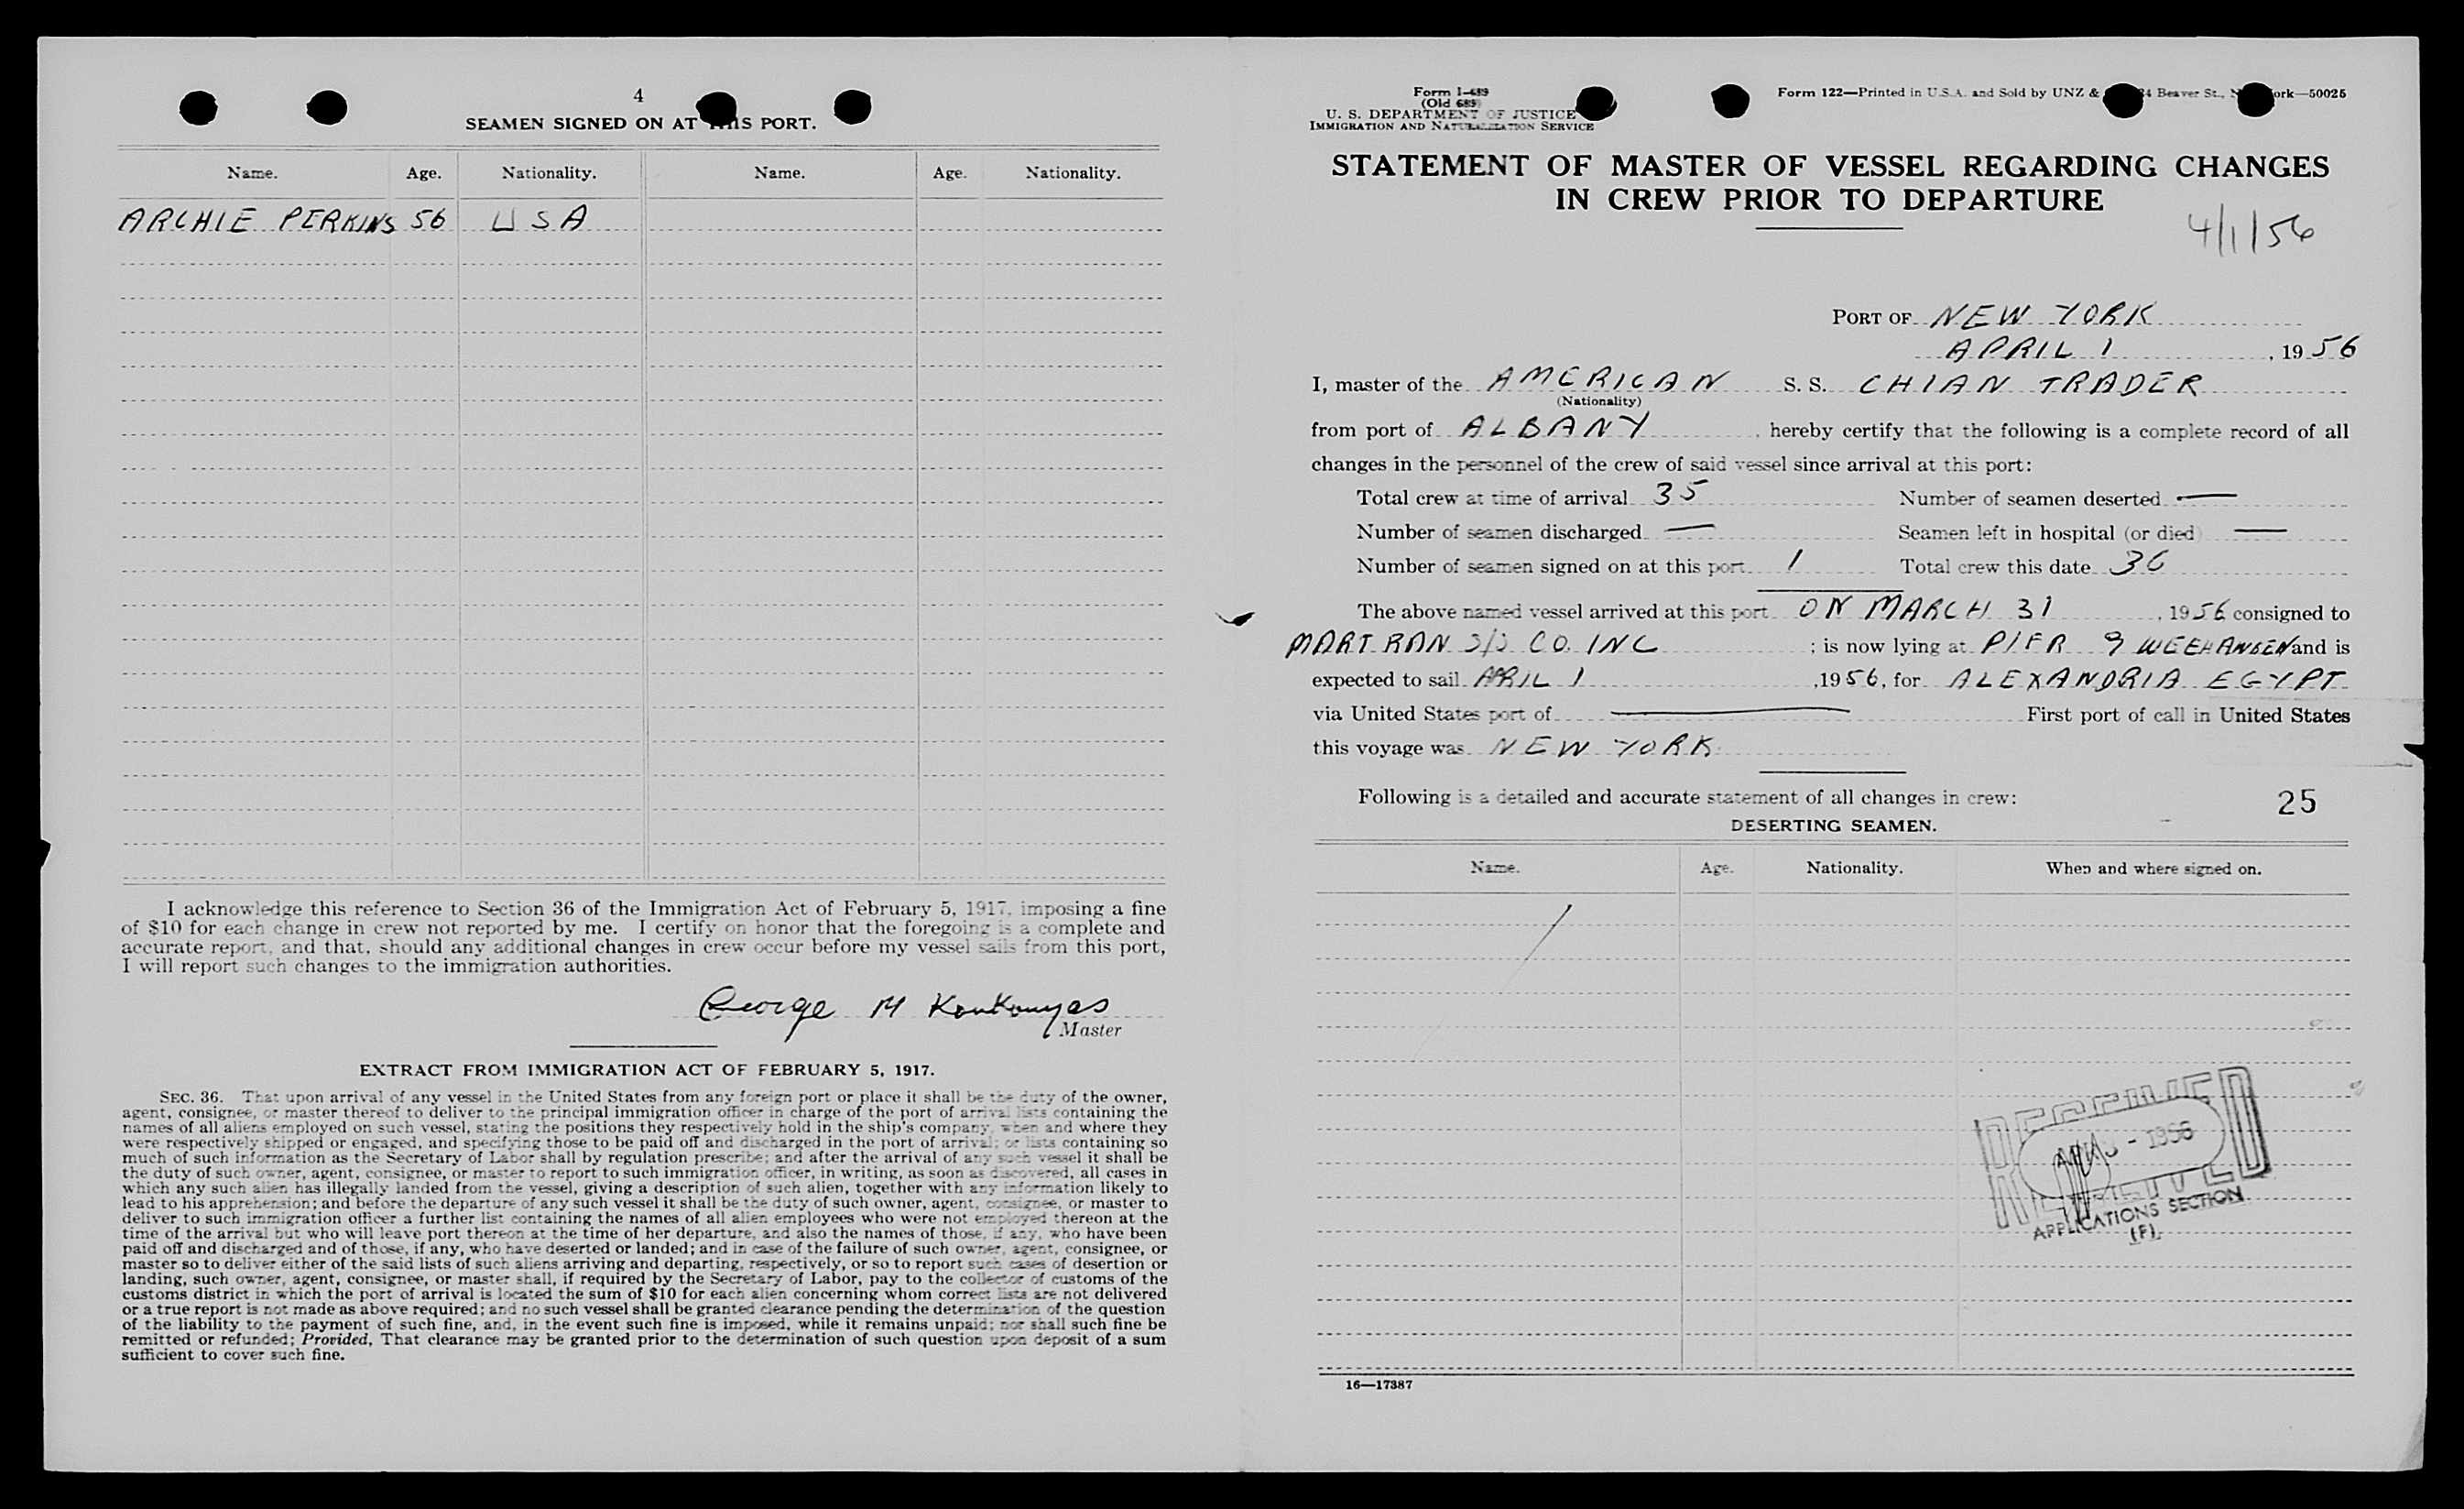 4
SEAMEN SIGNED ON AT THIS PORT.
Name. Age. Nationality. Name. Age. Nationality.
ARCHIE PERKINS 56 USA
I acknowledge this reference to Section 36 of the Immigration Act of February 5, 1917, imposing a fine
of $10 for each change in crew not reported by me. I certify on honor that the foregoing is a complete and
accurate report, and that, should any additional changes in crew occur before my vessel sails from this port,
I will report such changes to the immigration authorities.
George M
Master
EXTRACT FROM IMMIGRATION ACT OF FEBRUARY 5, 1917.
SEC. 36. That upon arrival of any vessel in the United States from any foreign port or place it shall be the duty of the owner,
agent, consignee, or master thereof to deliver to the principal immigration officer in charge of the port of arrival lists containing the
names of all aliens employed on such vessel, stating the positions they respectively hold in the ship's company, when and where they
were respectively shipped or engaged, and specifying those to be paid off and discharged in the port of arrival; or lists containing so
much of such information as the Secretary of Labor shall by regulation prescribe; and after the arrival of any such vessel it shall be
the duty of such owner, agent, consignee, or master to report to such immigration officer, in writing, as soon as discovered, all cases in
which any such alien has illegally landed from the vessel, giving a description of such alien, together with any information likely to
lead to his apprehension; and before the departure of any such vessel it shall be the duty of such owner, agent, consignee, or master to
deliver to such immigration officer a further list containing the names of all alien employees who were not employed thereon at the
time of the arrival but who will leave port thereon at the time of her departure, and also the names of those, if any, who have been
paid off and discharged and of those, if any, who have deserted or landed; and in case of the failure of such owner, agent, consignee, or
master so to deliver either of the said lists of such aliens arriving and departing, respectively, or so to report such cases of desertion or
landing, such owner, agent, consignee, or master shall, if required by the Secretary of Labor, pay to the collector of customs of the
customs district in which the port of arrival is located the sum of $10 for each alien concerning whom correct lists are not delivered
or a true report is not made as above required; and no such vessel shall be granted clearance pending the determination of the question
of the liability to the payment of such fine, and, in the event such fine is imposed, while it remains unpaid; nor shall such fine be
remitted or refunded; Provided, That clearance may be granted prior to the determination of such question upon deposit of a sum
sufficient to cover such fine.
Form I-489
(Old 689)
U. S. DEPARTMENT OF JUSTICE
IMMIGRATION AND NATURALIZATION SERVICE
Form 122—Printed in U.S.A. and Sold by UNZ & 24 Beaver St., New York—50025
STATEMENT OF MASTER OF VESSEL REGARDING CHANGES
IN CREW PRIOR TO DEPARTURE
4/1/56
PORT OF NEW YORK
APRIL 1, 1956
I, master of the AMERICAN S. S. CHIAN TRADER
(Nationality)
from port of ALBANY, hereby certify that the following is a complete record of all
changes in the personnel of the crew of said vessel since arrival at this port:
Total crew at time of arrival 35 Number of seamen deserted —
Number of seamen discharged — Seamen left in hospital (or died) —
Number of seamen signed on at this port 1 Total crew this date 36
The above named vessel arrived at this port ON MARCH 31, 1956 consigned to
MARTRAN S/S CO. INC ; is now lying at PIER 9 WEEHAWKEN and is
expected to sail APRIL 1, 1956, for ALEXANDRIA EGYPT
via United States port of — First port of call in United States
this voyage was NEW YORK
Following is a detailed and accurate statement of all changes in crew:
25
DESERTING SEAMEN.
Name. Age. Nationality. When and where signed on.
RECEIVED
- 1956
RECEIVED
APPLICATIONS SECTION
(F)
16—17387